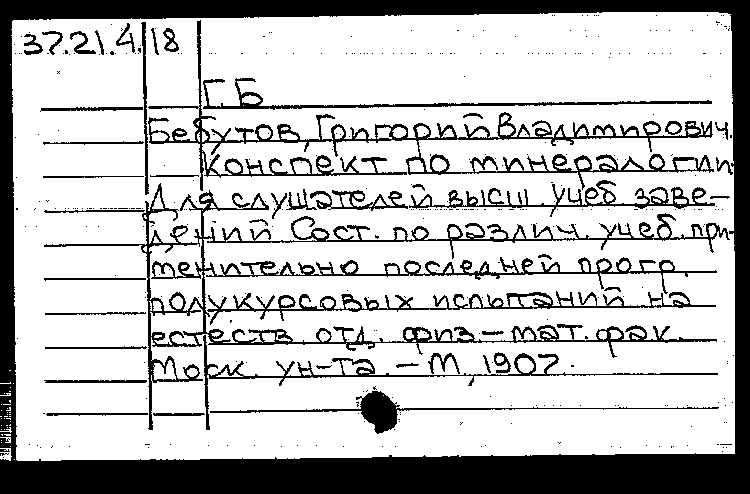 37.21.4.18
Г.Б
Бебутов, Григорий Владимирович.
Конспект по минералогии
Для слушателей высш. учеб заве-
дений Сост. по различ. учеб. при-
менительно последней прогр.
полукурсовых испытаний на
естеств. отд. физ.-мат. фак.
Моск. ун-та. - М, 1907.